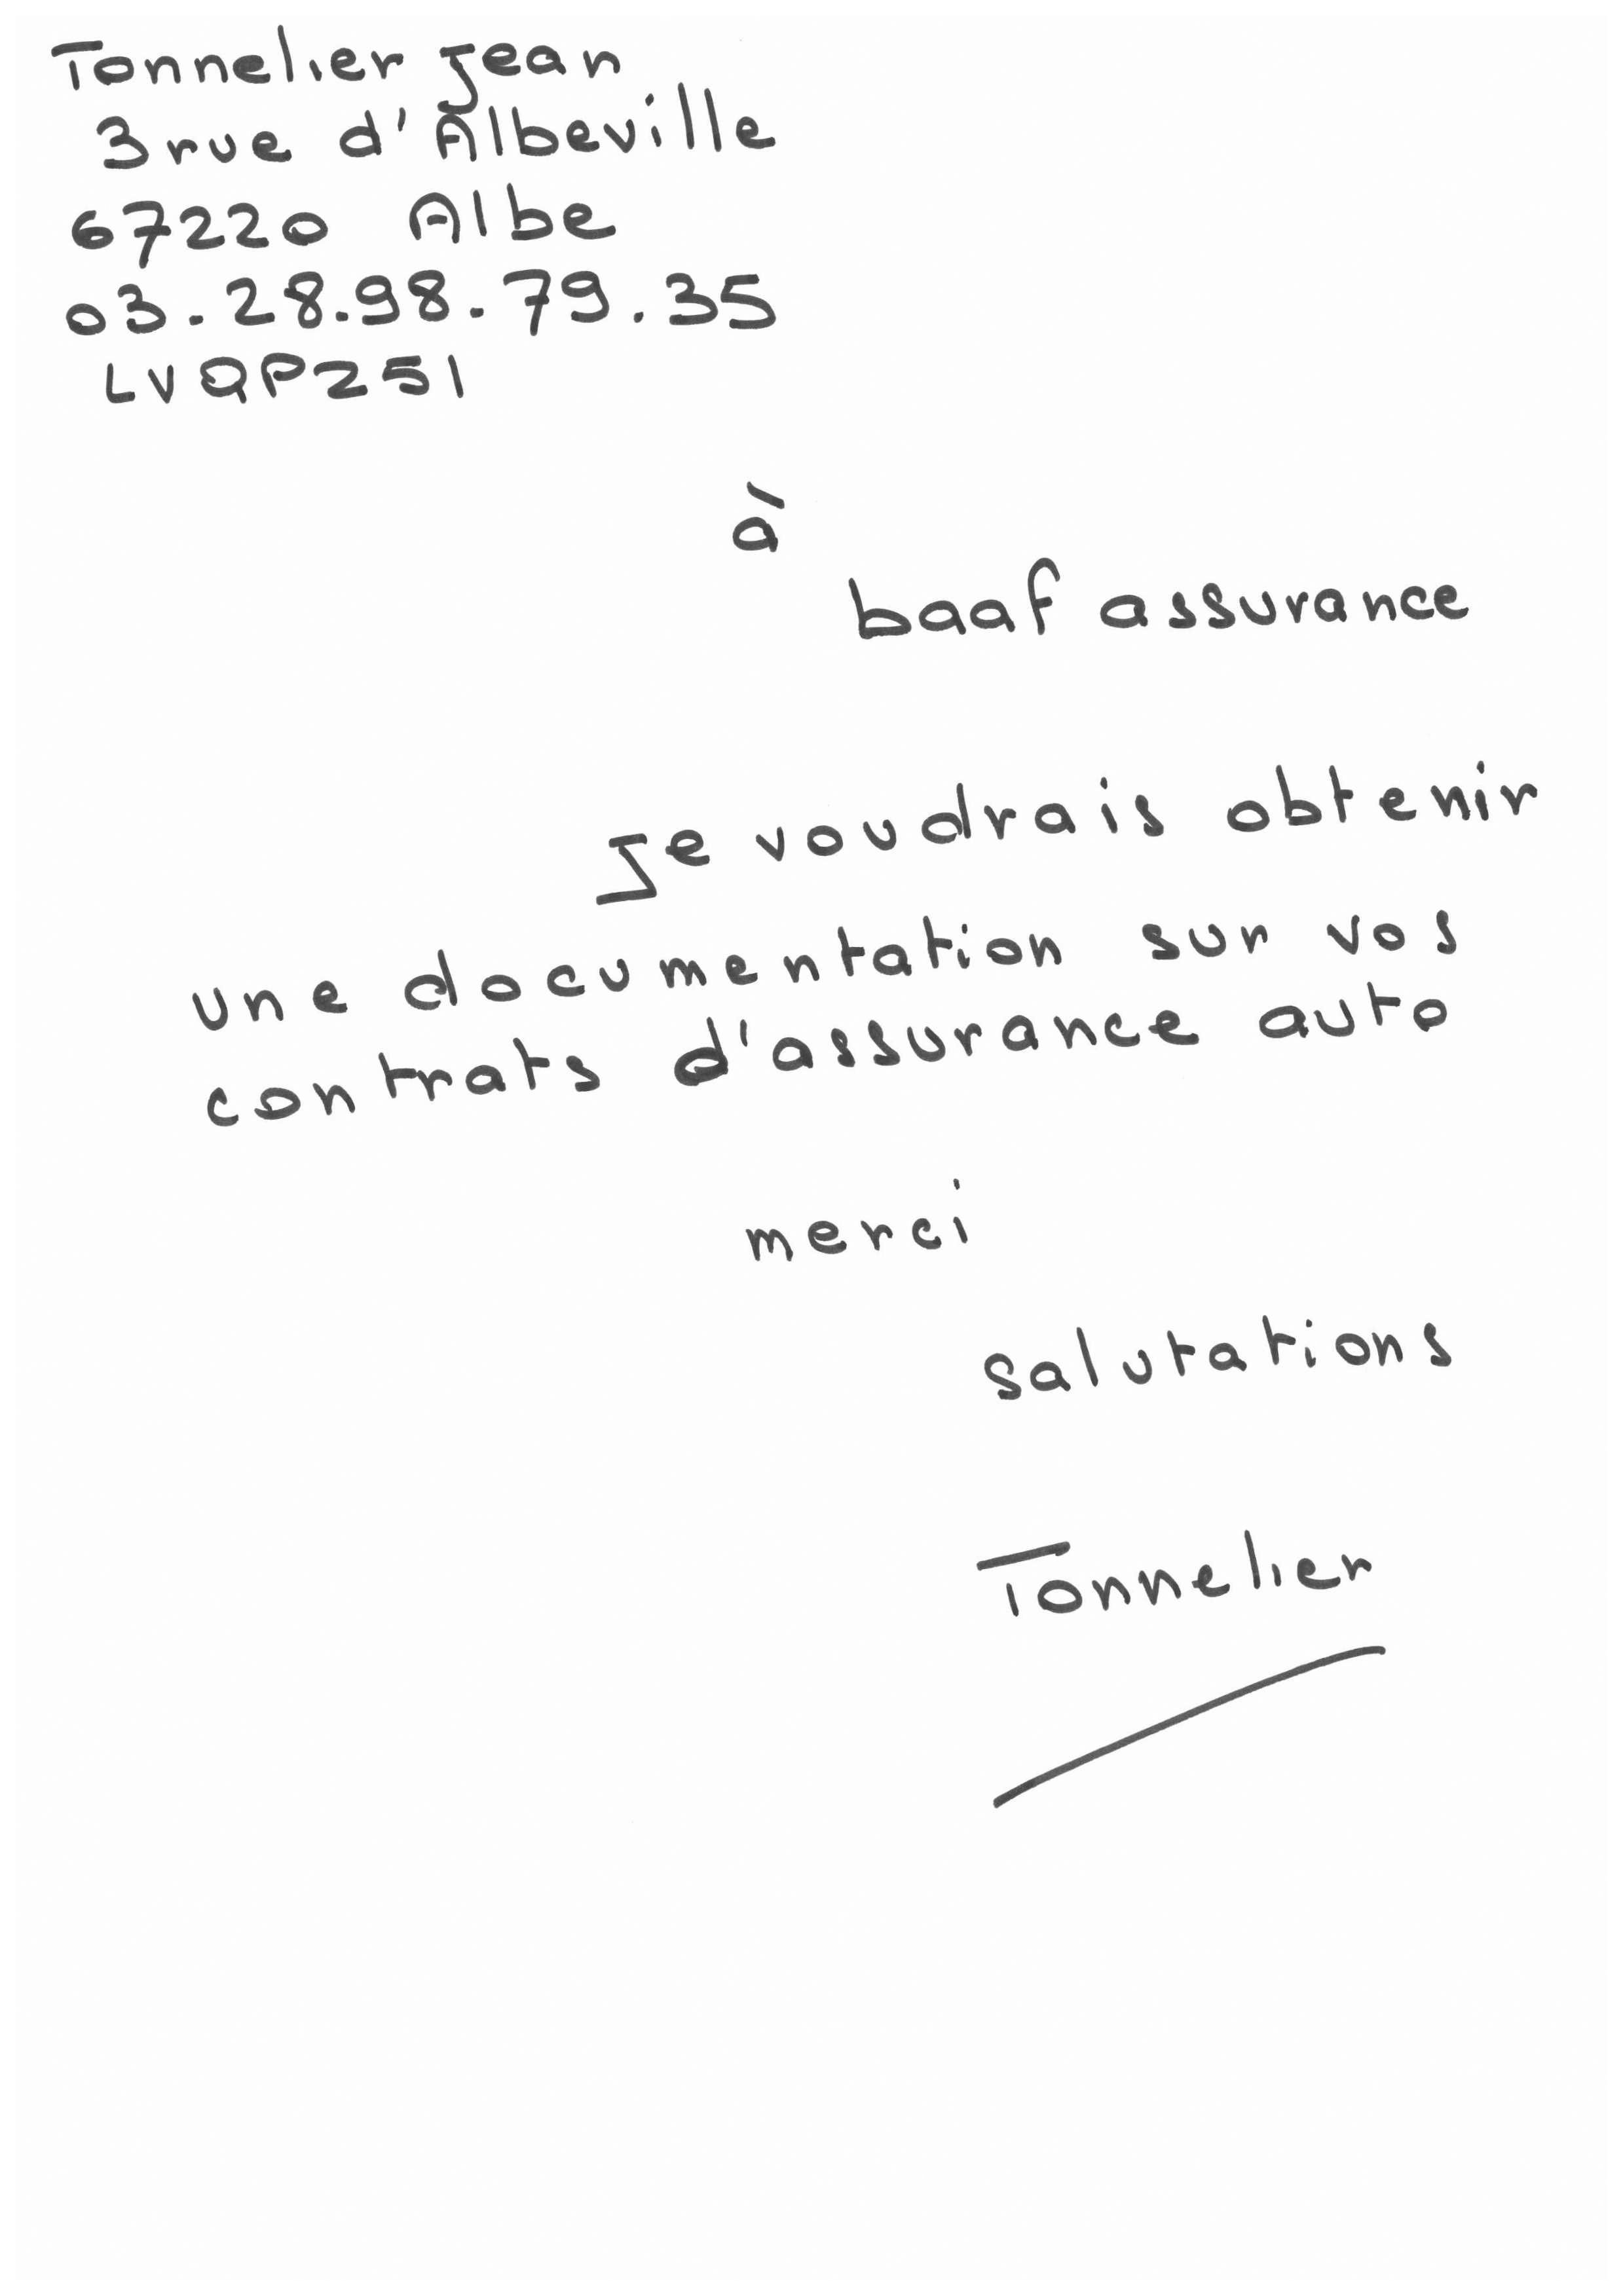 Tonnelier Jean
3 rue d'Albeville
67220 Albe
03.28.98.79.35
LVQPZ51
à
baaf assurance
Je voudrais obtenir
une documentation sur vos
contrats d'assurance auto
merci
salutations
Tonnelier